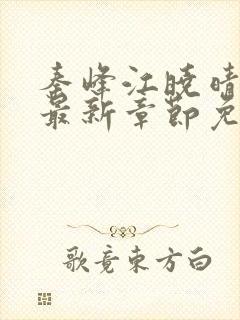 秦峰江晓晴
最新章节免
歌竟东方白